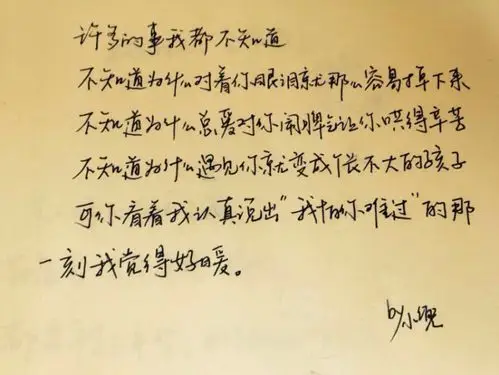 许多的事我都不知道
不知道为什么对着你眼泪就那么容易掉下来
不知道为什么总爱对你闹脾气让你哄得辛苦
不知道为什么遇见你就变成个长不大的孩子
可你看着我认真说出“我怕你难过”的那
一刻我觉得好暖。
by小倪